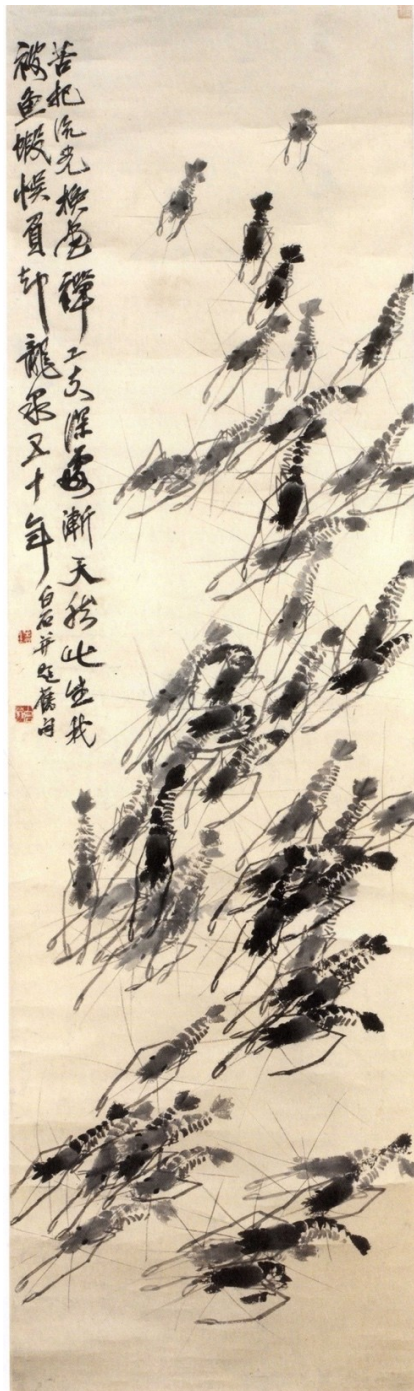 苦把流光換畫禪工夫深處漸天然此生我
被魚蝦悮負却龍泉五十年
白石并題舊句